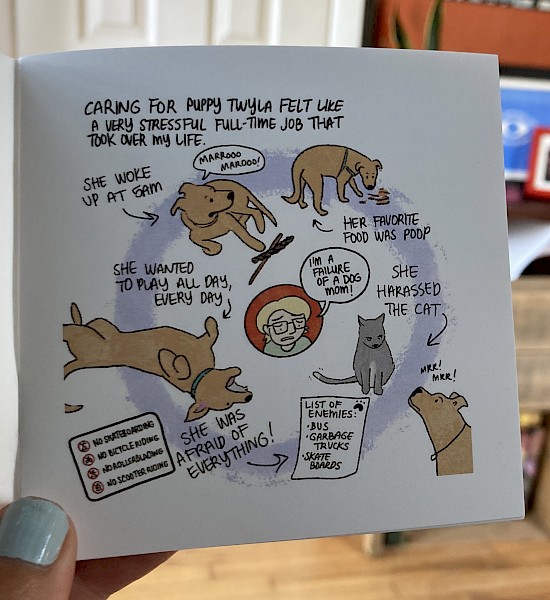 CARING FOR PUPPY TWYLA FELT LIKE
A VERY STRESSFUL FULL-TIME JOB THAT
TOOK OVER MY LIFE.
MARROOO
MAROOO!
SHE WOKE
UP AT 5AM
HER FAVORITE
FOOD WAS POOP
SHE WANTED
TO PLAY ALL DAY,
EVERY DAY
I'M A
FAILURE
OF A DOG
MOM!
SHE
HARASSED
THE CAT
MRR!
MRR!
SHE WAS
AFRAID OF
EVERYTHING!
LIST OF
ENEMIES:
• BUS
• GARBAGE
TRUCKS
• SKATE
BOARDS
NO SKATEBOARDING
NO BICYCLE RIDING
NO ROLLERBLADING
NO SCOOTER RIDING